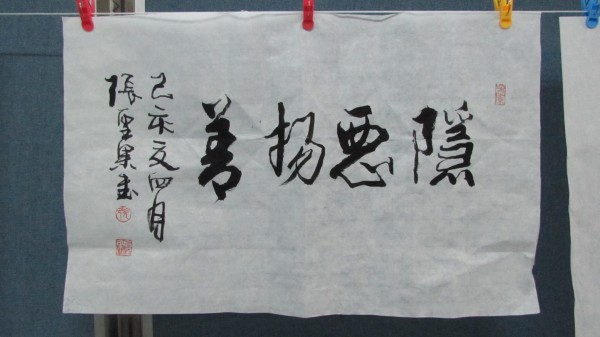 隱惡揚善
己亥夏四月
張聖果書